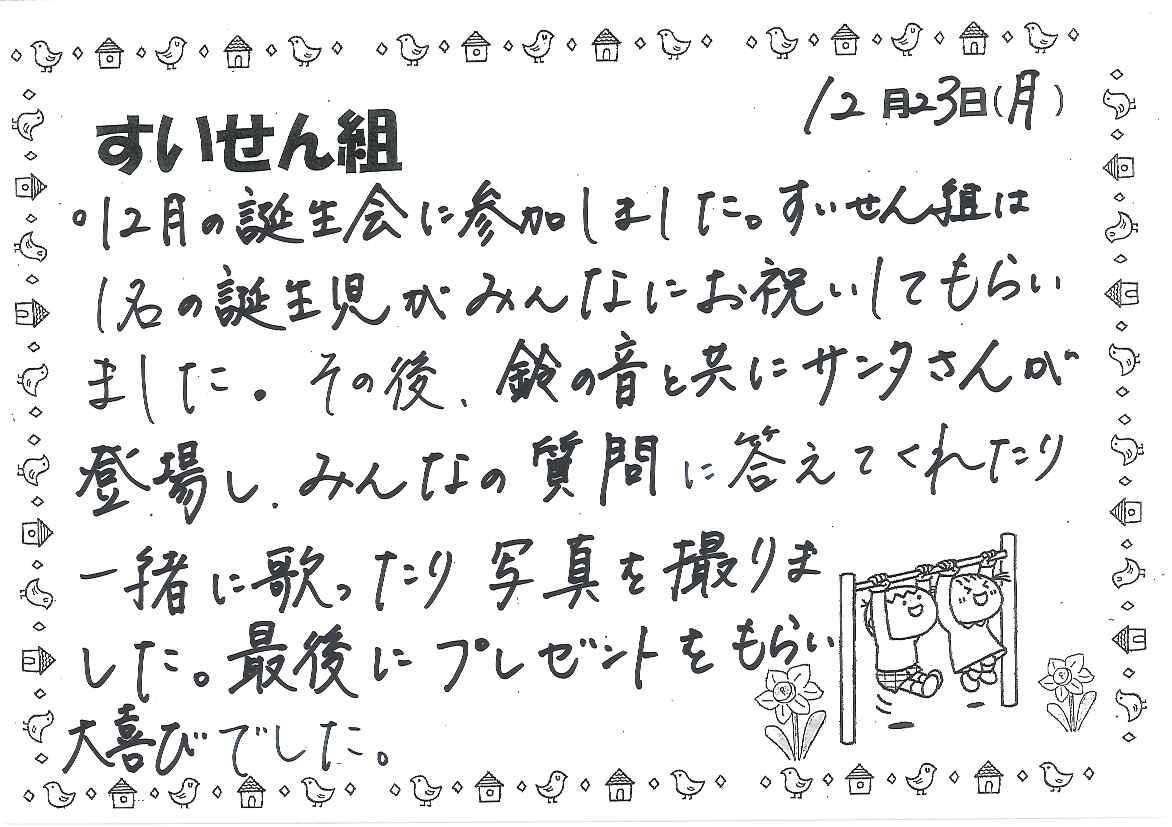 12月23日(月)
すいせん組
○12月の誕生会に参加しました。すいせん組は
1名の誕生児がみんなにお祝いしてもらい
ました。その後、鈴の音と共にサンタさんが
登場し、みんなの質問に答えてくれたり
一緒に歌ったり写真を撮りま
した。最後にプレゼントをもらい
大喜びでした。